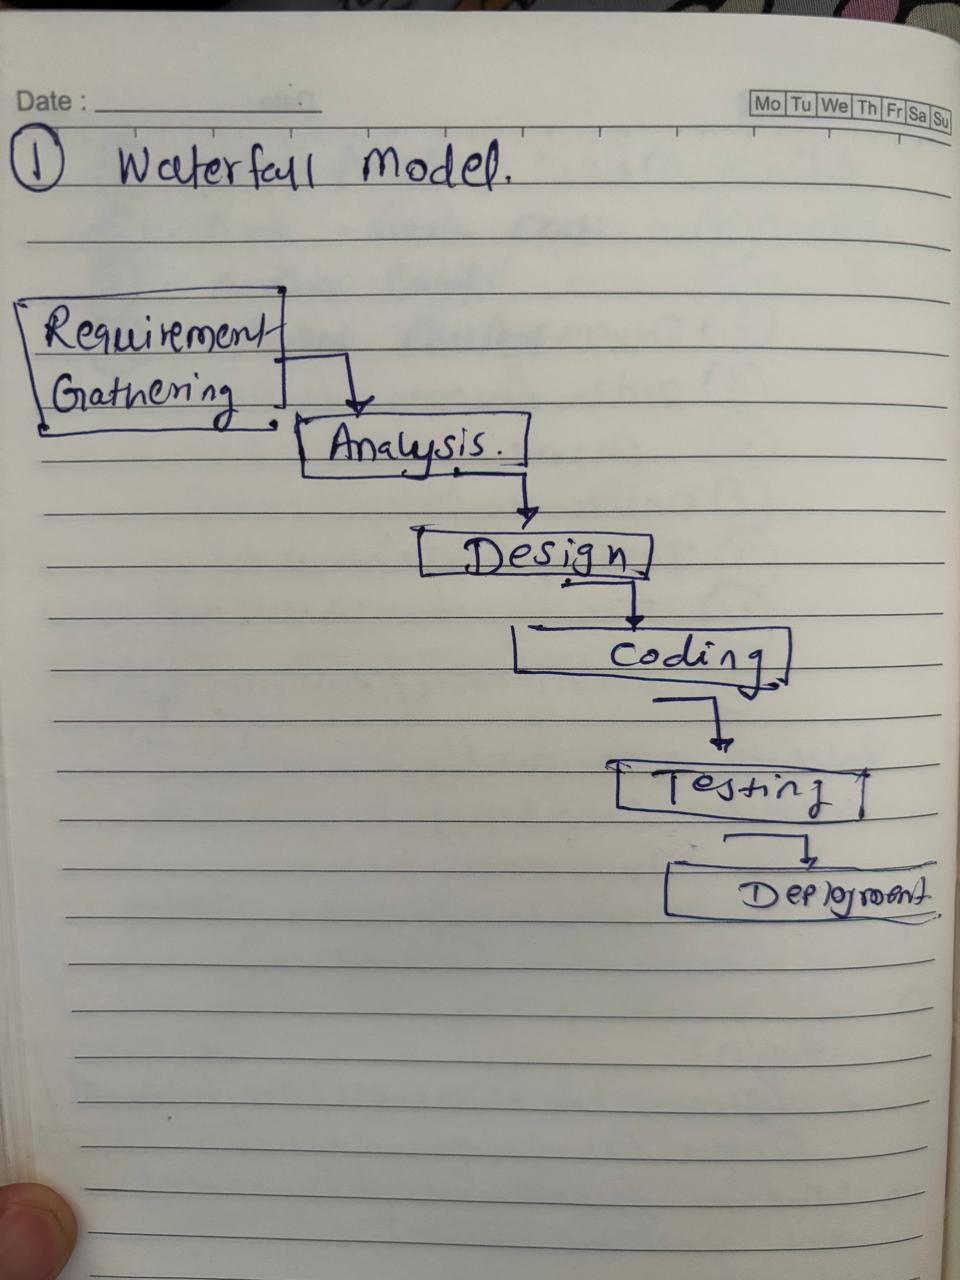 Date :
Mo Tu We Th Fr Sa Su
① Waterfall Model.
Requirement
Gathering
Analysis.
Design
Coding
Testing
Deployment